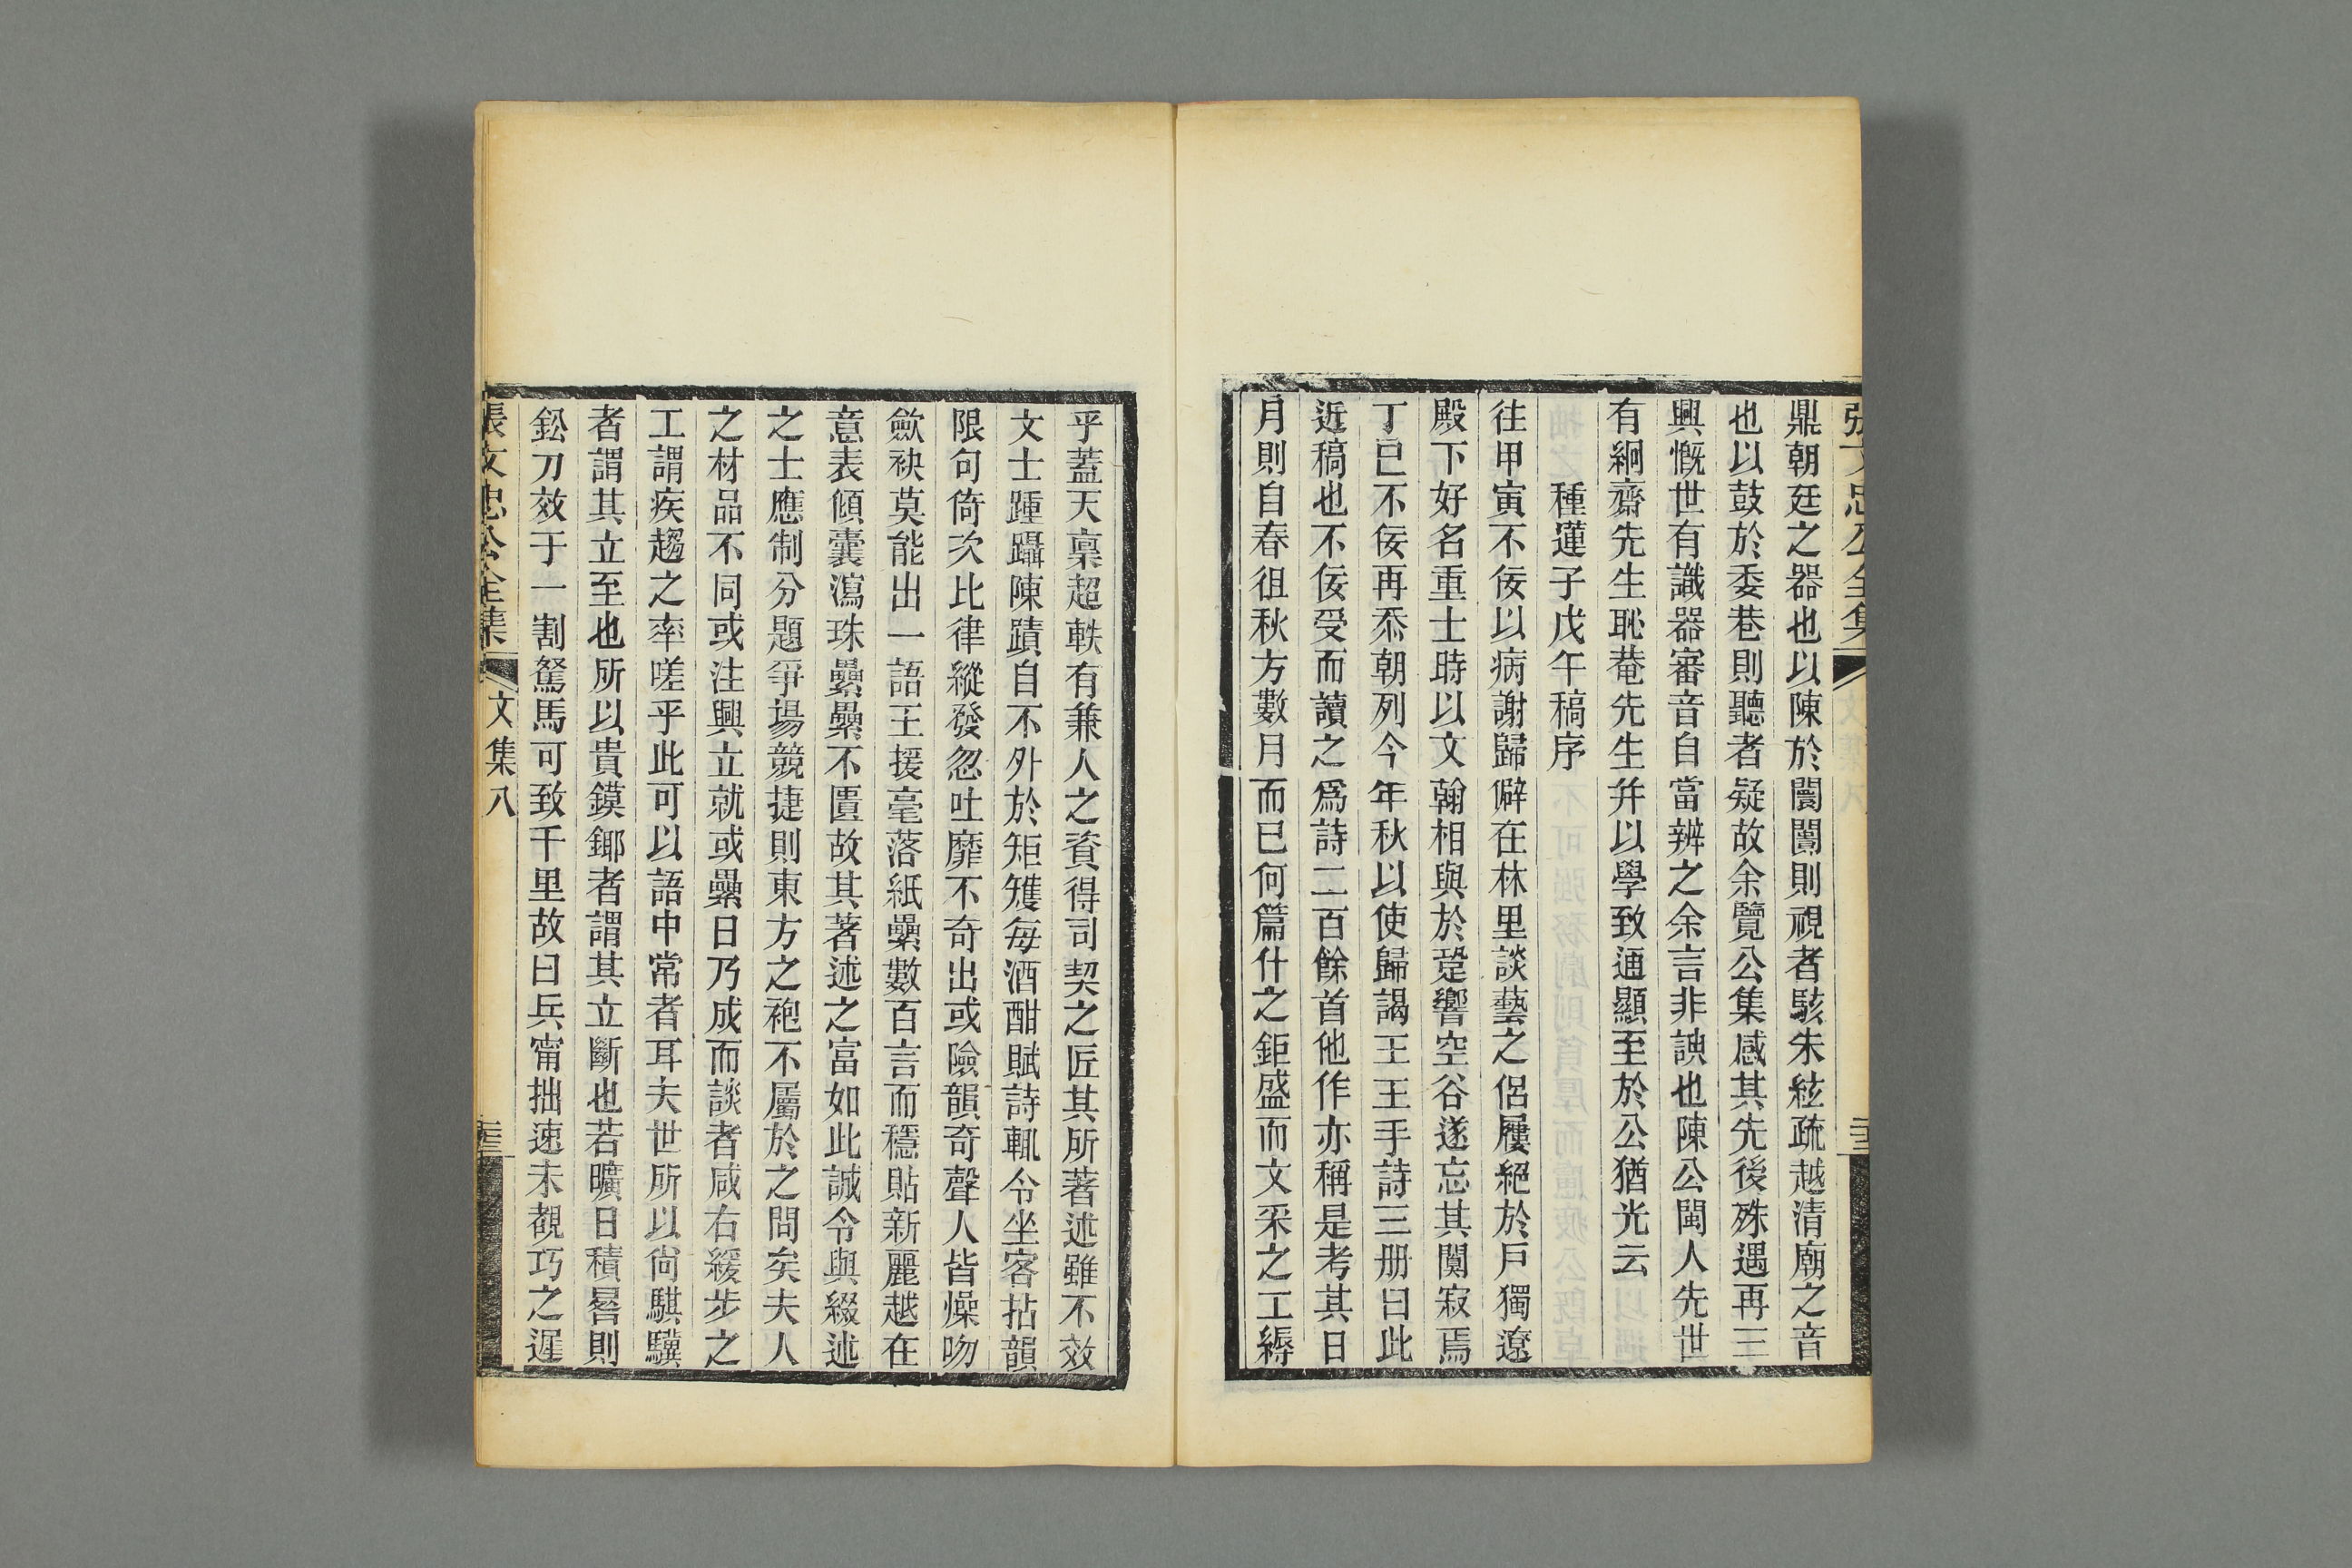 張文忠公全集 文集八 二十三
鼎朝廷之器也以陳於闤闠則視者駭朱絃疏越清廟之音
也以鼓於委巷則聽者疑故余覽公集感其先後殊遇再三
興慨世有識器審音自當辨之余言非諛也陳公閩人先世
有絅齋先生恥菴先生幷以學致通顯至於公猶光云
種蓮子戊午稿序
往甲寅不佞以病謝歸僻在林里談藝之侶屨絕於戶獨遼
殿下好名重士時以文翰相與於跫響空谷遂忘其闃寂焉
丁巳不佞再忝朝列今年秋以使歸謁王王手詩三册曰此
近稿也不佞受而讀之爲詩二百餘首他作亦稱是考其日
月則自春徂秋方數月而已何篇什之鉅盛而文采之工縟
乎蓋天稟超軼有兼人之資得司契之匠其所著述雖不效
文士踵躡陳蹟自不外於矩矱每酒酣賦詩輒令坐客拈韻
限句倚次比律縱發忽吐靡不奇出或險韻奇聲人皆燥吻
斂袂莫能出一語王援毫落紙纍數百言而穩貼新麗越在
意表傾囊瀉珠纍纍不匱故其著述之富如此誠令與綴述
之士應制分題爭場競捷則東方之袍不屬於之問矣夫人
之材品不同或注興立就或纍日乃成而談者咸右緩步之
工謂疾趨之率嗟乎此可以語中常者耳夫世所以尙騏驥
者謂其立至也所以貴鏌鋣者謂其立斷也若曠日積晷則
鈆刀效于一割駑馬可致千里故曰兵甯拙速未覩巧之遲
張文忠公全集 文集八 二十三